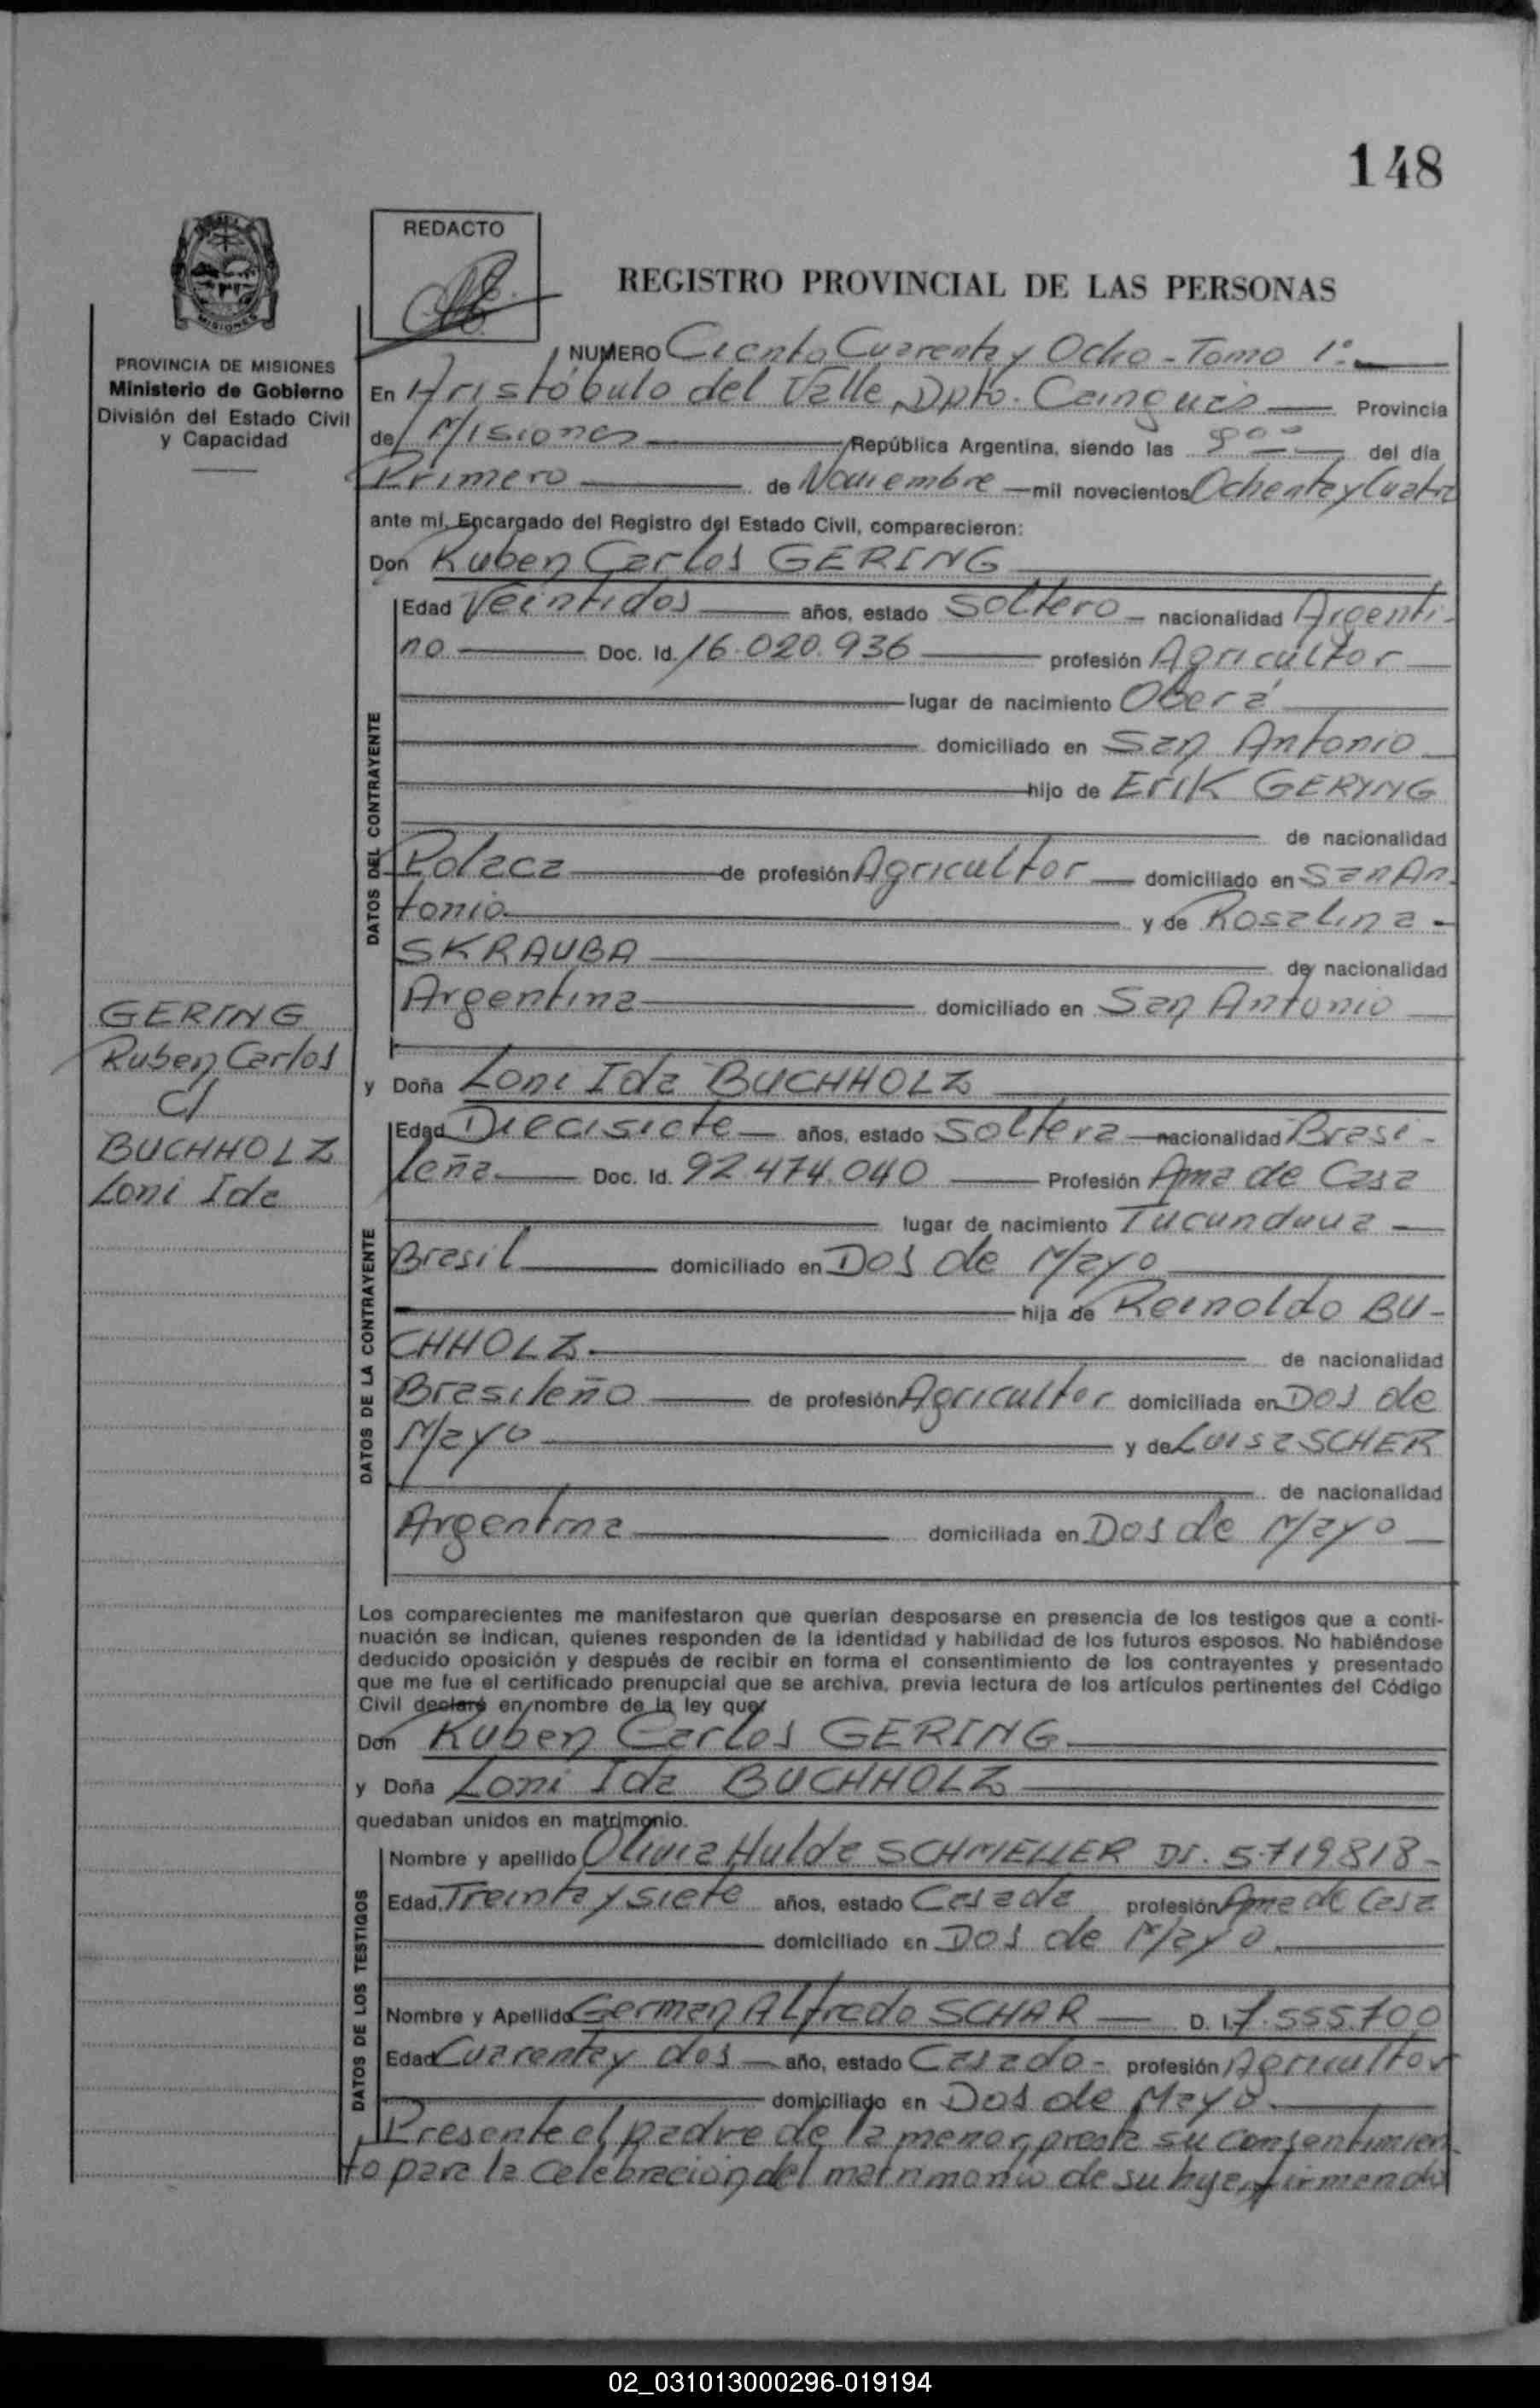 148
REDACTO
REGISTRO PROVINCIAL DE LAS PERSONAS
MISIONES
PROVINCIA DE MISIONES
Ministerio de Gobierno
División del Estado Civil
y Capacidad
NUMERO Ciento Cuarenta y Ocho - Tomo 1º
En Aristóbulo del Valle, Dpto. Cainguás Provincia
de Misiones República Argentina, siendo las del día
Primero de Noviembre mil novecientos Ochenta y Cuatro
ante mí, Encargado del Registro del Estado Civil, comparecieron:
Don Ruben Carlos GERING
DATOS DEL CONTRAYENTE
Edad Veintidos años, estado Soltero - nacionalidad Argenti-
no Doc. Id. 16.020.936 profesión Agricultor
lugar de nacimiento Oberá
domiciliado en San Antonio
hijo de Erik GERYNG
de nacionalidad
Polaca de profesión Agricultor domiciliado en San An-
tonio y de Rosalina -
SKRAUBA de nacionalidad
Argentina domiciliado en San Antonio
GERING
Ruben Carlos
c/
BUCHHOLZ
Loni Ida
y Doña Loni Ida BUCHHOLZ
DATOS DE LA CONTRAYENTE
Edad Diecisiete años, estado Soltera nacionalidad Brasi-
leña Doc. Id. 92.474.040 Profesión Ama de Casa
lugar de nacimiento Tucunduva
Brasil domiciliado en Dos de Mayo
hija de Reinoldo BU-
CHHOLZ. de nacionalidad
Brasileño de profesión Agricultor domiciliada en Dos de
Mayo y de Luisa SCHER
de nacionalidad
Argentina domiciliada en Dos de Mayo
Los comparecientes me manifestaron que querían desposarse en presencia de los testigos que a conti-
nuación se indican, quienes responden de la identidad y habilidad de los futuros esposos. No habiéndose
deducido oposición y después de recibir en forma el consentimiento de los contrayentes y presentado
que me fue el certificado prenupcial que se archiva, previa lectura de los artículos pertinentes del Código
Civil declaré en nombre de la ley que
Don Ruben Carlos GERING
y Doña Loni Ida BUCHHOLZ
quedaban unidos en matrimonio.
DATOS DE LOS TESTIGOS
Nombre y apellido Olivia Hulda SCHMELLER DI. 5.719.818-
Edad Treinta y siete años, estado Casada profesión Ama de Casa
domiciliado en Dos de Mayo
Nombre y Apellido German Alfredo SCHAR D. I. 7.555.700
Edad Cuarenta y dos año, estado Casado - profesión Agricultor
domiciliado en Dos de Mayo.
Presente el padre de la menor, presta su consentimien-
to para la celebración del matrimonio de su hija, firmando
02_031013000296-019194